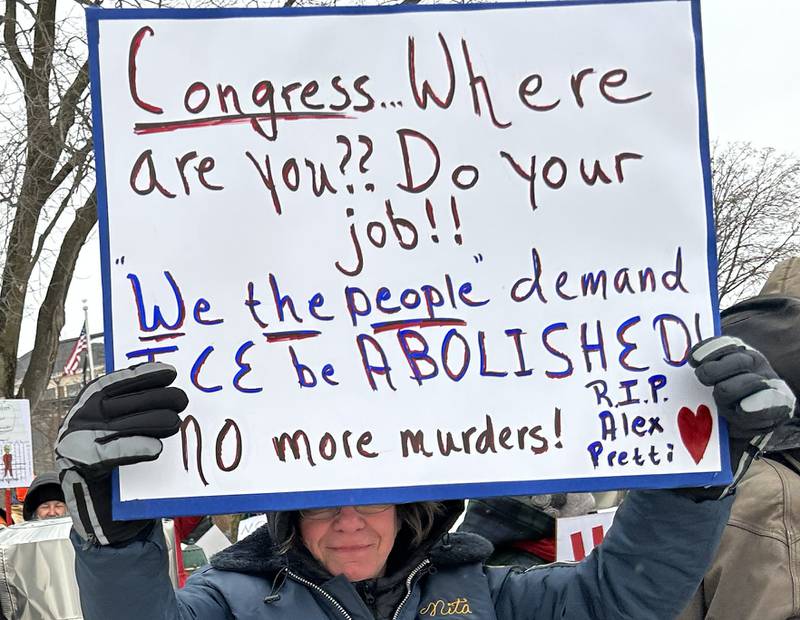 Congress...Where
are you?? Do your
job!!
"We the people" demand
ICE be ABOLISHED!
NO more murders!
R.I.P.
Alex
Pretti
Nita